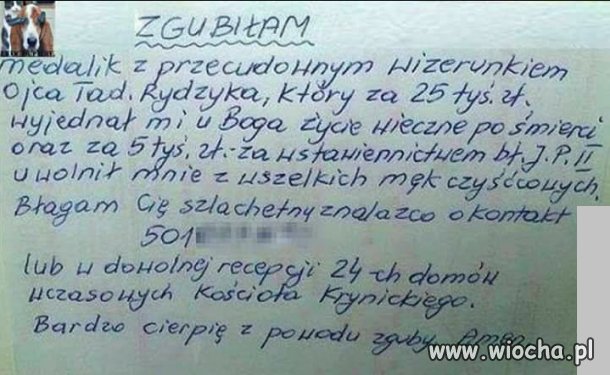 ZGUBIŁAM
medalik z przecudownym wizerunkiem
Ojca Tad. Rydzyka, który za 25 tyś. zł.
wyjednał mi u Boga życie wieczne po śmierci
oraz za 5 tyś. zł.- za wstawiennictwem bł. J. P. II
uwolnił mnie z wszelkich męk czyśćcowych.
Błagam Cię szlachetny znalazco o kontakt
501
lub w dowolnej recepcji 24-ch domów
wczasowych Kościoła Krynickiego.
Bardzo cierpię z powodu zguby. Amen.
www.wiocha.pl